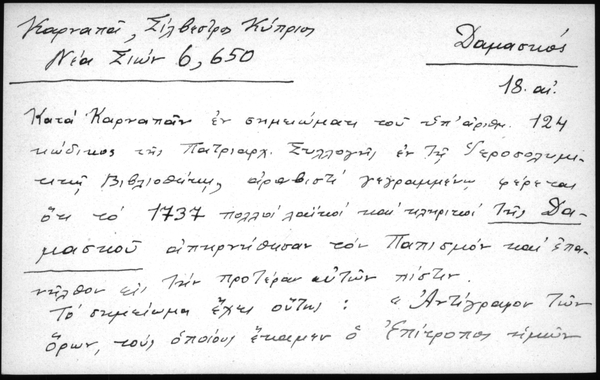 Καρναπᾶ, Σίλβεστρος Κύπριος
Νέα Σιών 6, 650
Δαμασκός
18. αἰ.
Κατά Καρναπᾶν ἐν σημειώματι τοῦ ὑπ' ἀριθμ. 124
κώδικος τῆς Πατριαρχ. Συλλογῆς ἐν τῇ Ἱεροσολυμι-
τικῇ Βιβλιοθήκῃ, ἀραβιστί γεγραμμένῳ φέρεται
ὅτι τό 1737 πολλοί λαϊκοί καί κληρικοί τῆς Δα-
μασκοῦ ἀπηρνήθησαν τόν Παπισμόν καί ἐπα-
νῆλθον εἰς τήν προτέραν αὐτῶν πίστιν.
Τό σημείωμα ἔχει οὕτως : « Ἀντίγραφον τῶν
ὅρων, τούς ὁποίους ἔκαμεν ὁ Ἐπίτροπος ἡμῶν